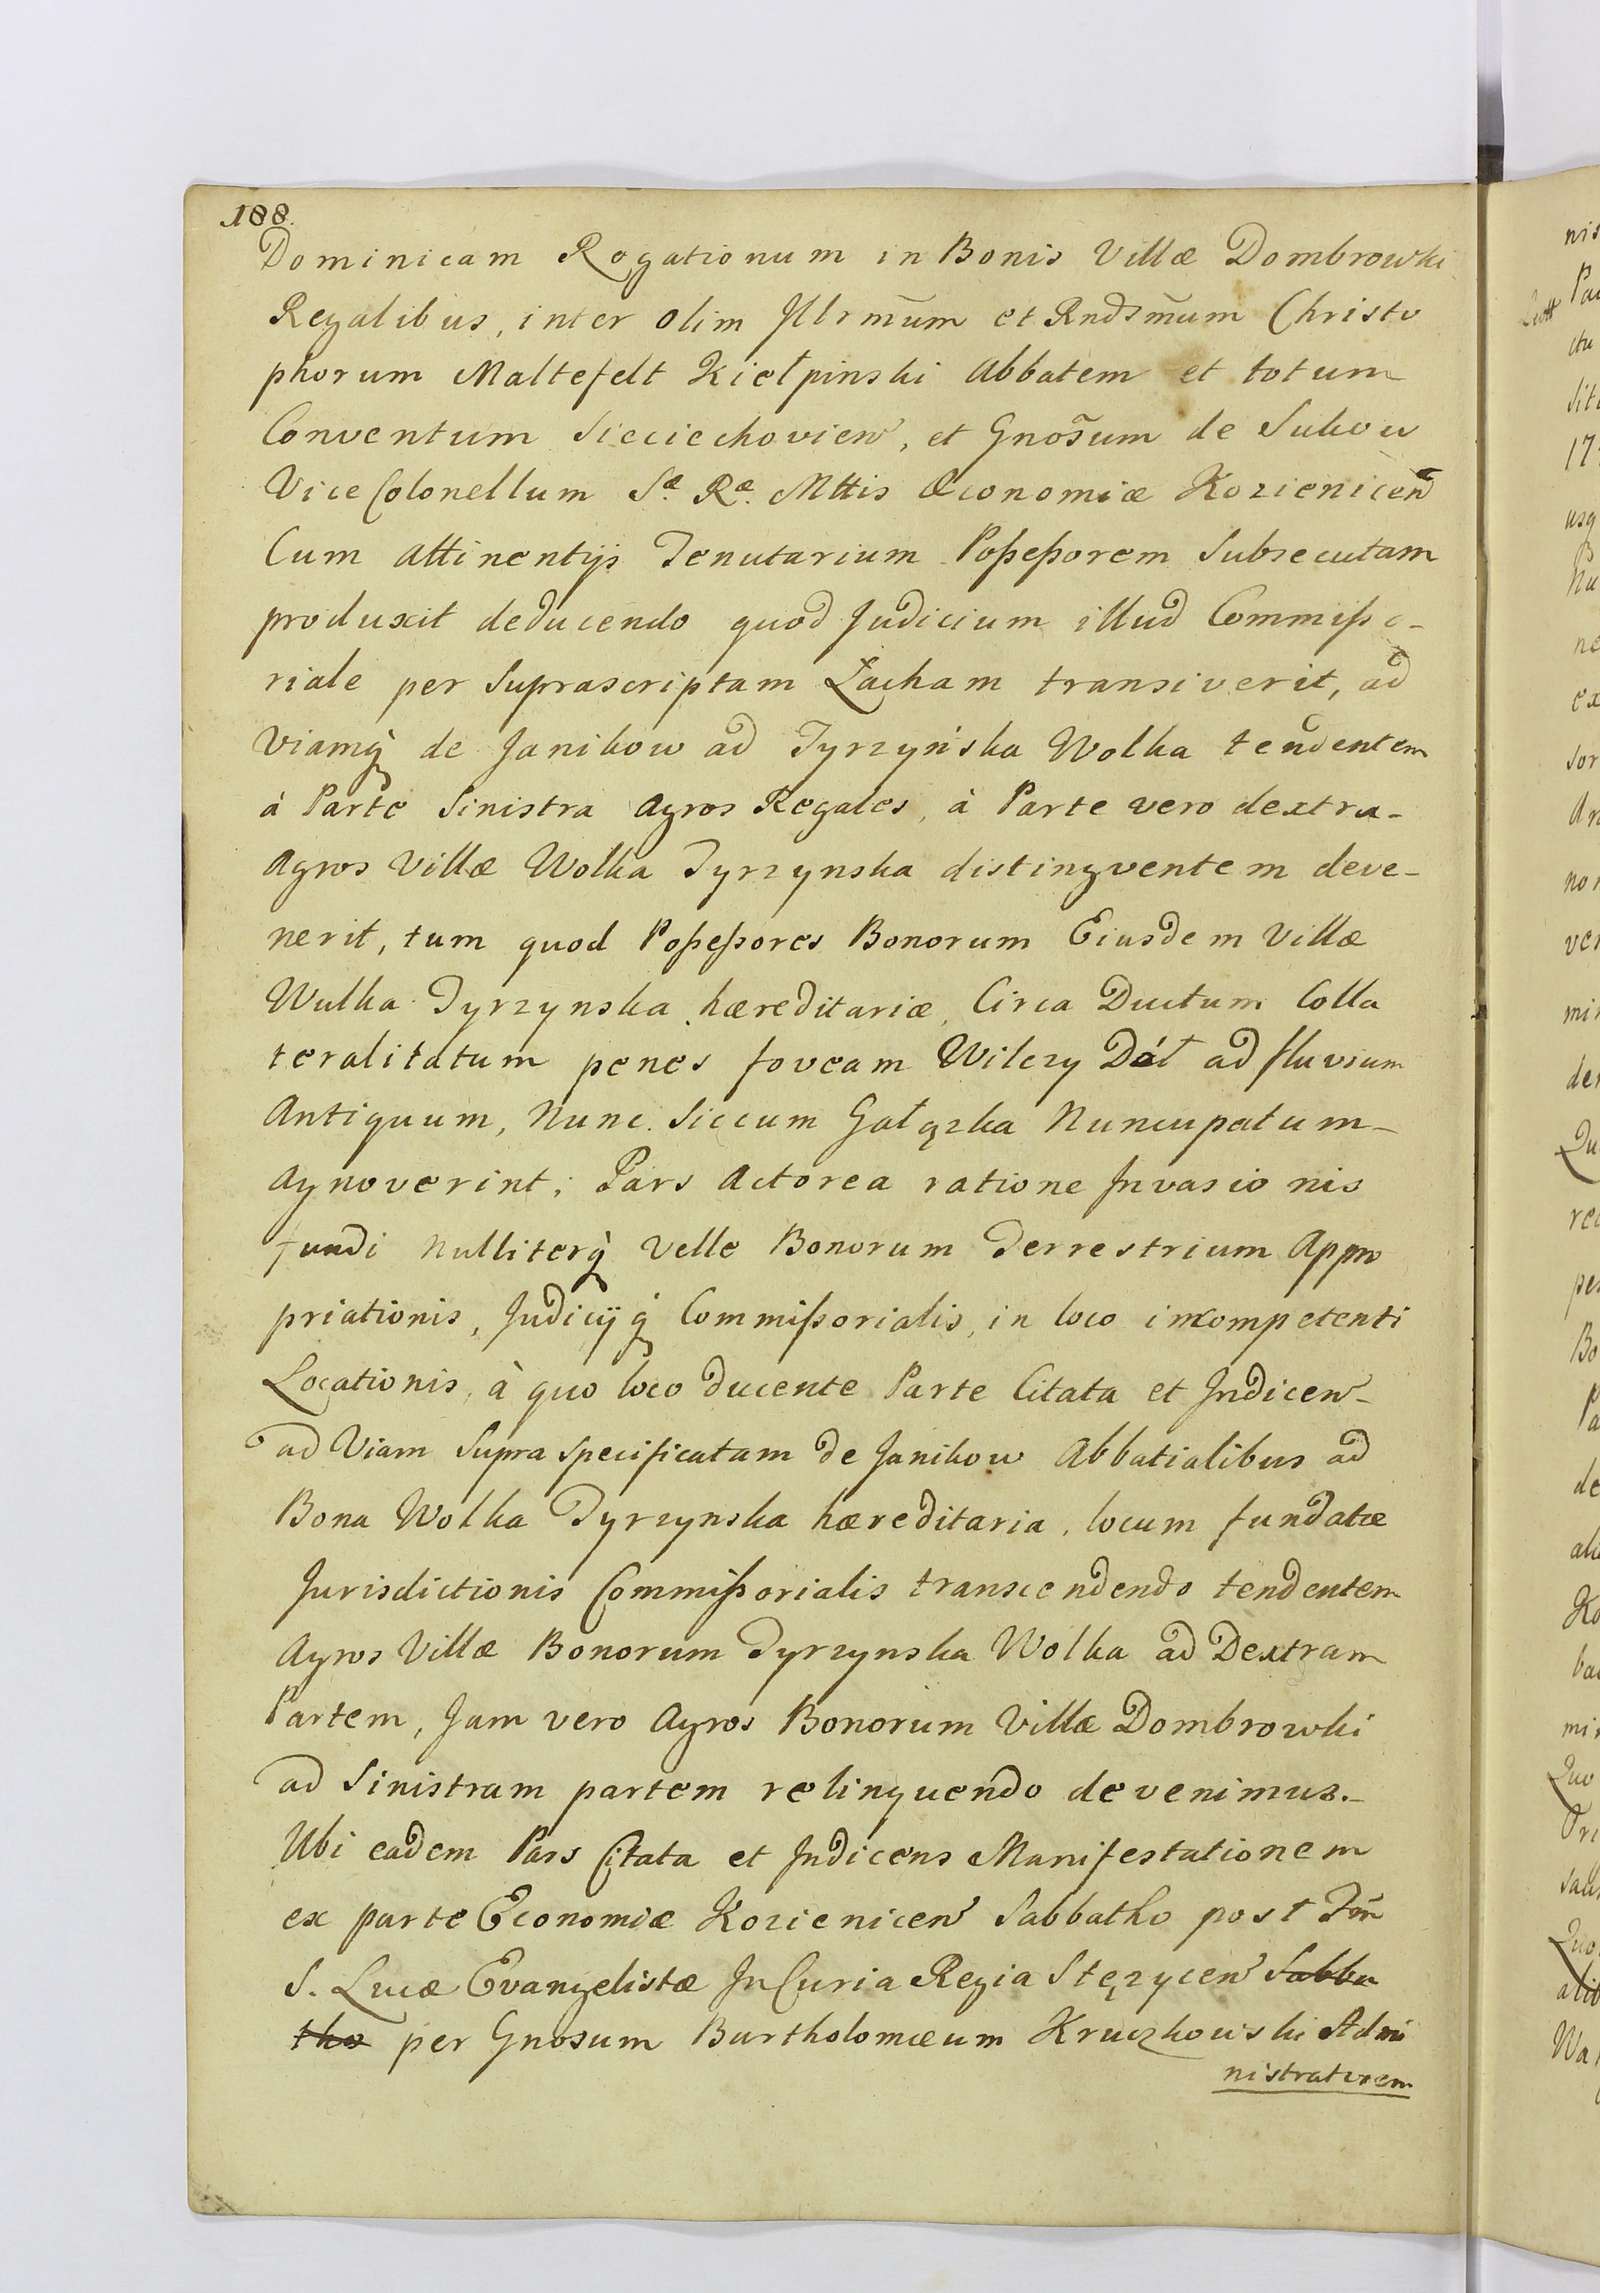 188.
Dominicam Rogationum in Bonis Villæ Dombrowki
Regalibus, inter olim Jllrmum et Rndsmum Christo
phorum Maltefelt Kiełpinski Abbatem et totum
Conventum Sieciechovien, et Gnosum de Sukow
Vice Colonellum Sæ Ræ Mttis Œconomiæ Kozienicen
Cum attinentijs Tenutarium Poßeßorem Subsecutam
produxit deducendo quod Judicium illud Commißo-
riale per Suprascriptam Łacham transiverit, ad
Viamq̀ de Janikow ad Tyrzyńska Wolka tendentem
à Parte Sinistra Agros Regales, à Parte vero dextra-
Agros Villæ Wolka Tyrzynska distingventem deve-
nerit, tum quod Poßeßores Bonorum Eiusdem Villæ
Wulka Tyrzynska hæreditariæ, Circa Ductum Colla
teralitatum penes foveam Wilczy Dół ad fluvium
Antiquum, Nunc Siccum Gałązka Nuncupatum-
Agnoverint; Pars Actorea ratione Invasionis
fundi Nulliterq̀ Velle Bonorum Terrestrium Appro
priationis, Judicijq̀ Commißorialis, in loco incompetenti
Locationis, à quo loco ducente Parte Citata et Indicen-
ad Viam Supra specificatam de Janikow Abbatialibus ad
Bona Wolka Tyrzynska hæreditaria, locum fundatæ
Jurisdictionis Commißorialis transcendendo tendentem
Agros Villæ Bonorum Tyrzynska Wolka ad Dextram
Partem, Jam vero Agros Bonorum Villæ Dombrowki
ad Sinistram partem relinquendo devenimus.-
Ubi eadem Pars Citata et Indicens Manifestationem
ex parte Economiæ Kozienicen Sabbatho post Fm
S. Lucæ Evangelistæ In Curia Regia Stęzycen Sabba
tho per Gnosum Bartholomæum Kruczkowski Admi
nistratorem